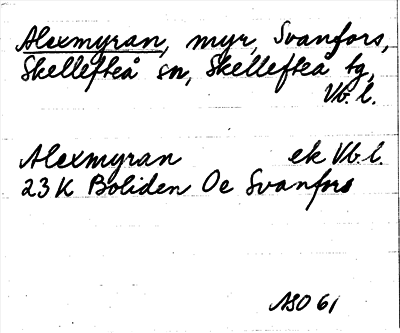 Alexmyran, myr, Svanfors,
Skellefteå sn, Skellefteå tg,
Vb. l.
Alexmyran ek Vb. l.
23 K Boliden Oe Svanfors
ASO 61